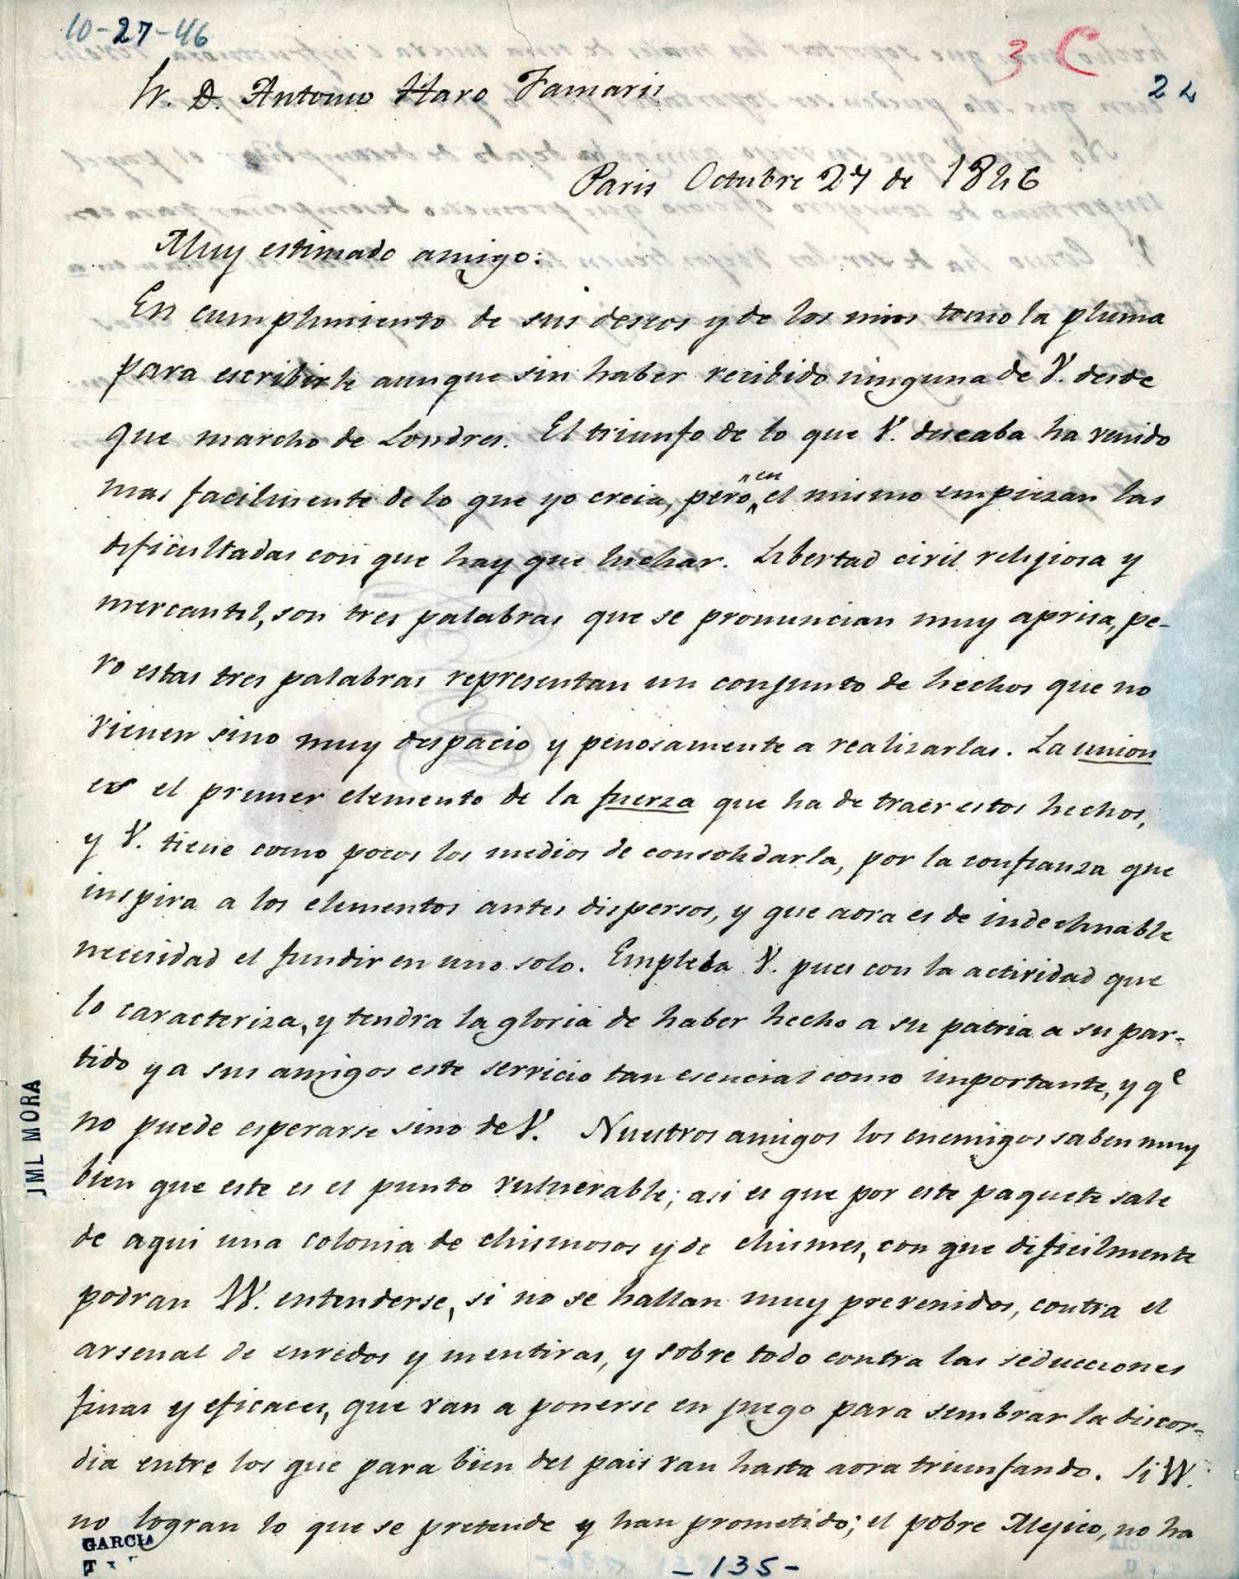 10-27-46
3 C
22
Sr. D. Antonio Haro Tamaris
Paris Octubre 27 de 1846
Muy estimado amigo:
En cumplimiento de sus deseos y de los mios tomo la pluma
para escribirle aunque sin haber recibido ninguna de V. desde
que marcho de Londres. El triunfo de lo que V. deseaba ha venido
mas facilmente de lo que yo creia, pero en el mismo empiezan las
dificultadas con que hay que luchar. Libertad civil religiosa y
mercantil, son tres palabras que se pronuncian muy aprisa, pe-
ro estas tres palabras representan un conjunto de hechos que no
vienen sino muy despacio y penosamente a realizarlas. La union
es el primer elemento de la fuerza que ha de traer estos hechos,
y V. tiene como pocos los medios de consolidarla, por la confianza que
inspira a los elementos antes dispersos, y que aora es de indeclinable
necesidad el fundir en uno solo. Empleela V. pues con la actividad que
lo caracteriza, y tendra la gloria de haber hecho a su patria a su par-
tido y a sus amigos este servicio tan esencial como importante, y qe
no puede esperarse sino de V. Nuestros amigos los enemigos saben muy
bien que este es el punto vulnerable; asi es que por este paquete sale
de aqui una colonia de chismosos y de chismes, con que dificilmente
podran VV. entenderse, si no se hallan muy prevenidos, contra el
arsenal de enredos y mentiras, y sobre todo contra las seducciones
finas y eficaces, que van a ponerse en juego para sembrar la discor-
dia entre los que para bien del pais van hasta aora triunfando. Si VV.
no logran lo que se pretende y han prometido; el pobre Mejico, no ha
JML MORA
GARCIA
-135-